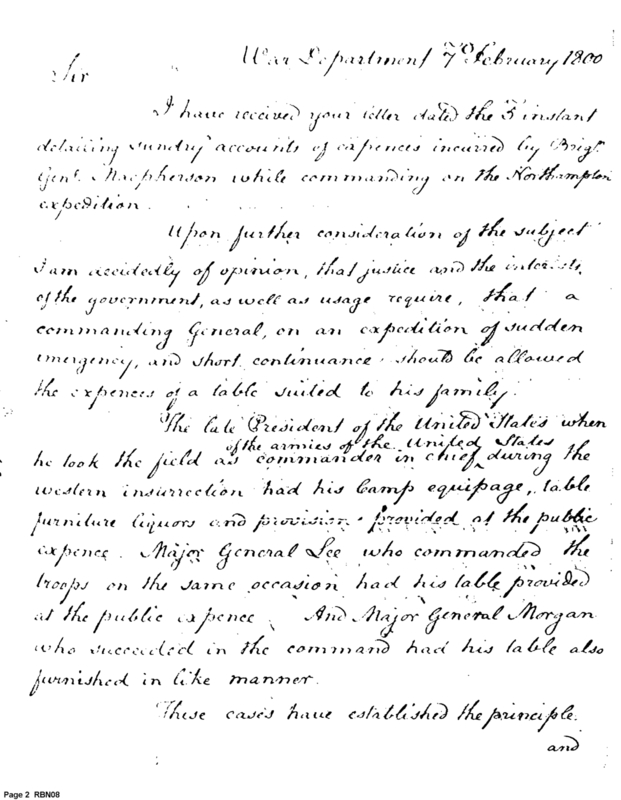 War Department 7th February 1800
Sir
I have received your letter dated the 5 instant
detailing sundry accounts of expences incurred by Brigr.
Genl. Macpherson while commanding on the Northampton
expedition.
Upon further consideration of the subject
I am decidedly of opinion, that justice and the interests,
of the government, as well as usage require, that a
commanding General, on an expedition of sudden
emergency, and short continuance should be allowed
the expences of a table suited to his family.
The late President of the United States when
of the armies of the United States
he took the field as commander in chief during the
western insurrection had his Camp equipage, table
furniture liquors and provision provided at the public
expence. Major General Lee who commanded the
troops on the same occasion had his table provided
at the public expence. And Major General Morgan
who succeeded in the command had his table also
furnished in like manner.
These cases have established the principle.
and
Page 2 RBN08